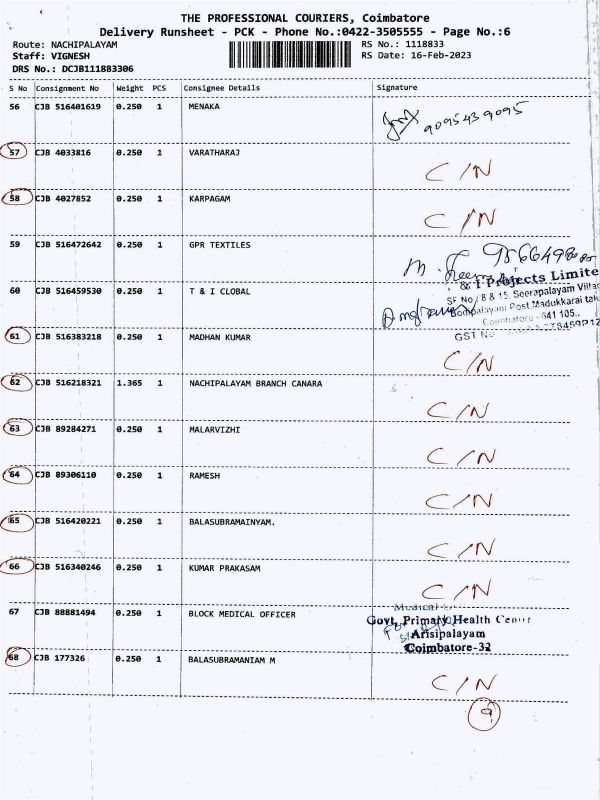 THE PROFESSIONAL COURIERS, Coimbatore
Delivery Runsheet - PCK - Phone No.:0422-3505555 - Page No.:6
Route: NACHIPALAYAM RS No.: 1118833
Staff: VIGNESH RS Date: 16-Feb-2023
DRS No.: DCJB111883306
S No Consignment No Weight PCS Consignee Details Signature
56 CJB 516401619 0.250 1 MENAKA
9095439095
57 CJB 4033816 0.250 1 VARATHARAJ
C/N
58 CJB 4027852 0.250 1 KARPAGAM
C/N
59 CJB 516472642 0.250 1 GPR TEXTILES
& I Projects Limite
60 CJB 516459530 0.250 1 T & I CLOBAL
SF No 8 & 15, Seerapalayam Villag
Post Madukkarai talu
Coimbatore - 641 105..
GST No
61 CJB 516383218 0.250 1 MADHAN KUMAR
C/N
62 CJB 516218321 1.365 1 NACHIPALAYAM BRANCH CANARA
C/N
63 CJB 89284271 0.250 1 MALARVIZHI
C/N
64 CJB 89306110 0.250 1 RAMESH
C/N
65 CJB 516420221 0.250 1 BALASUBRAMAINYAM.
C/N
66 CJB 516340246 0.250 1 KUMAR PRAKASAM
C/N
Medical
67 CJB 88881494 0.250 1 BLOCK MEDICAL OFFICER
Govt. Primary Health Center
Arisipalayam
Coimbatore-32
68 CJB 177326 0.250 1 BALASUBRAMANIAM M
C/N
9